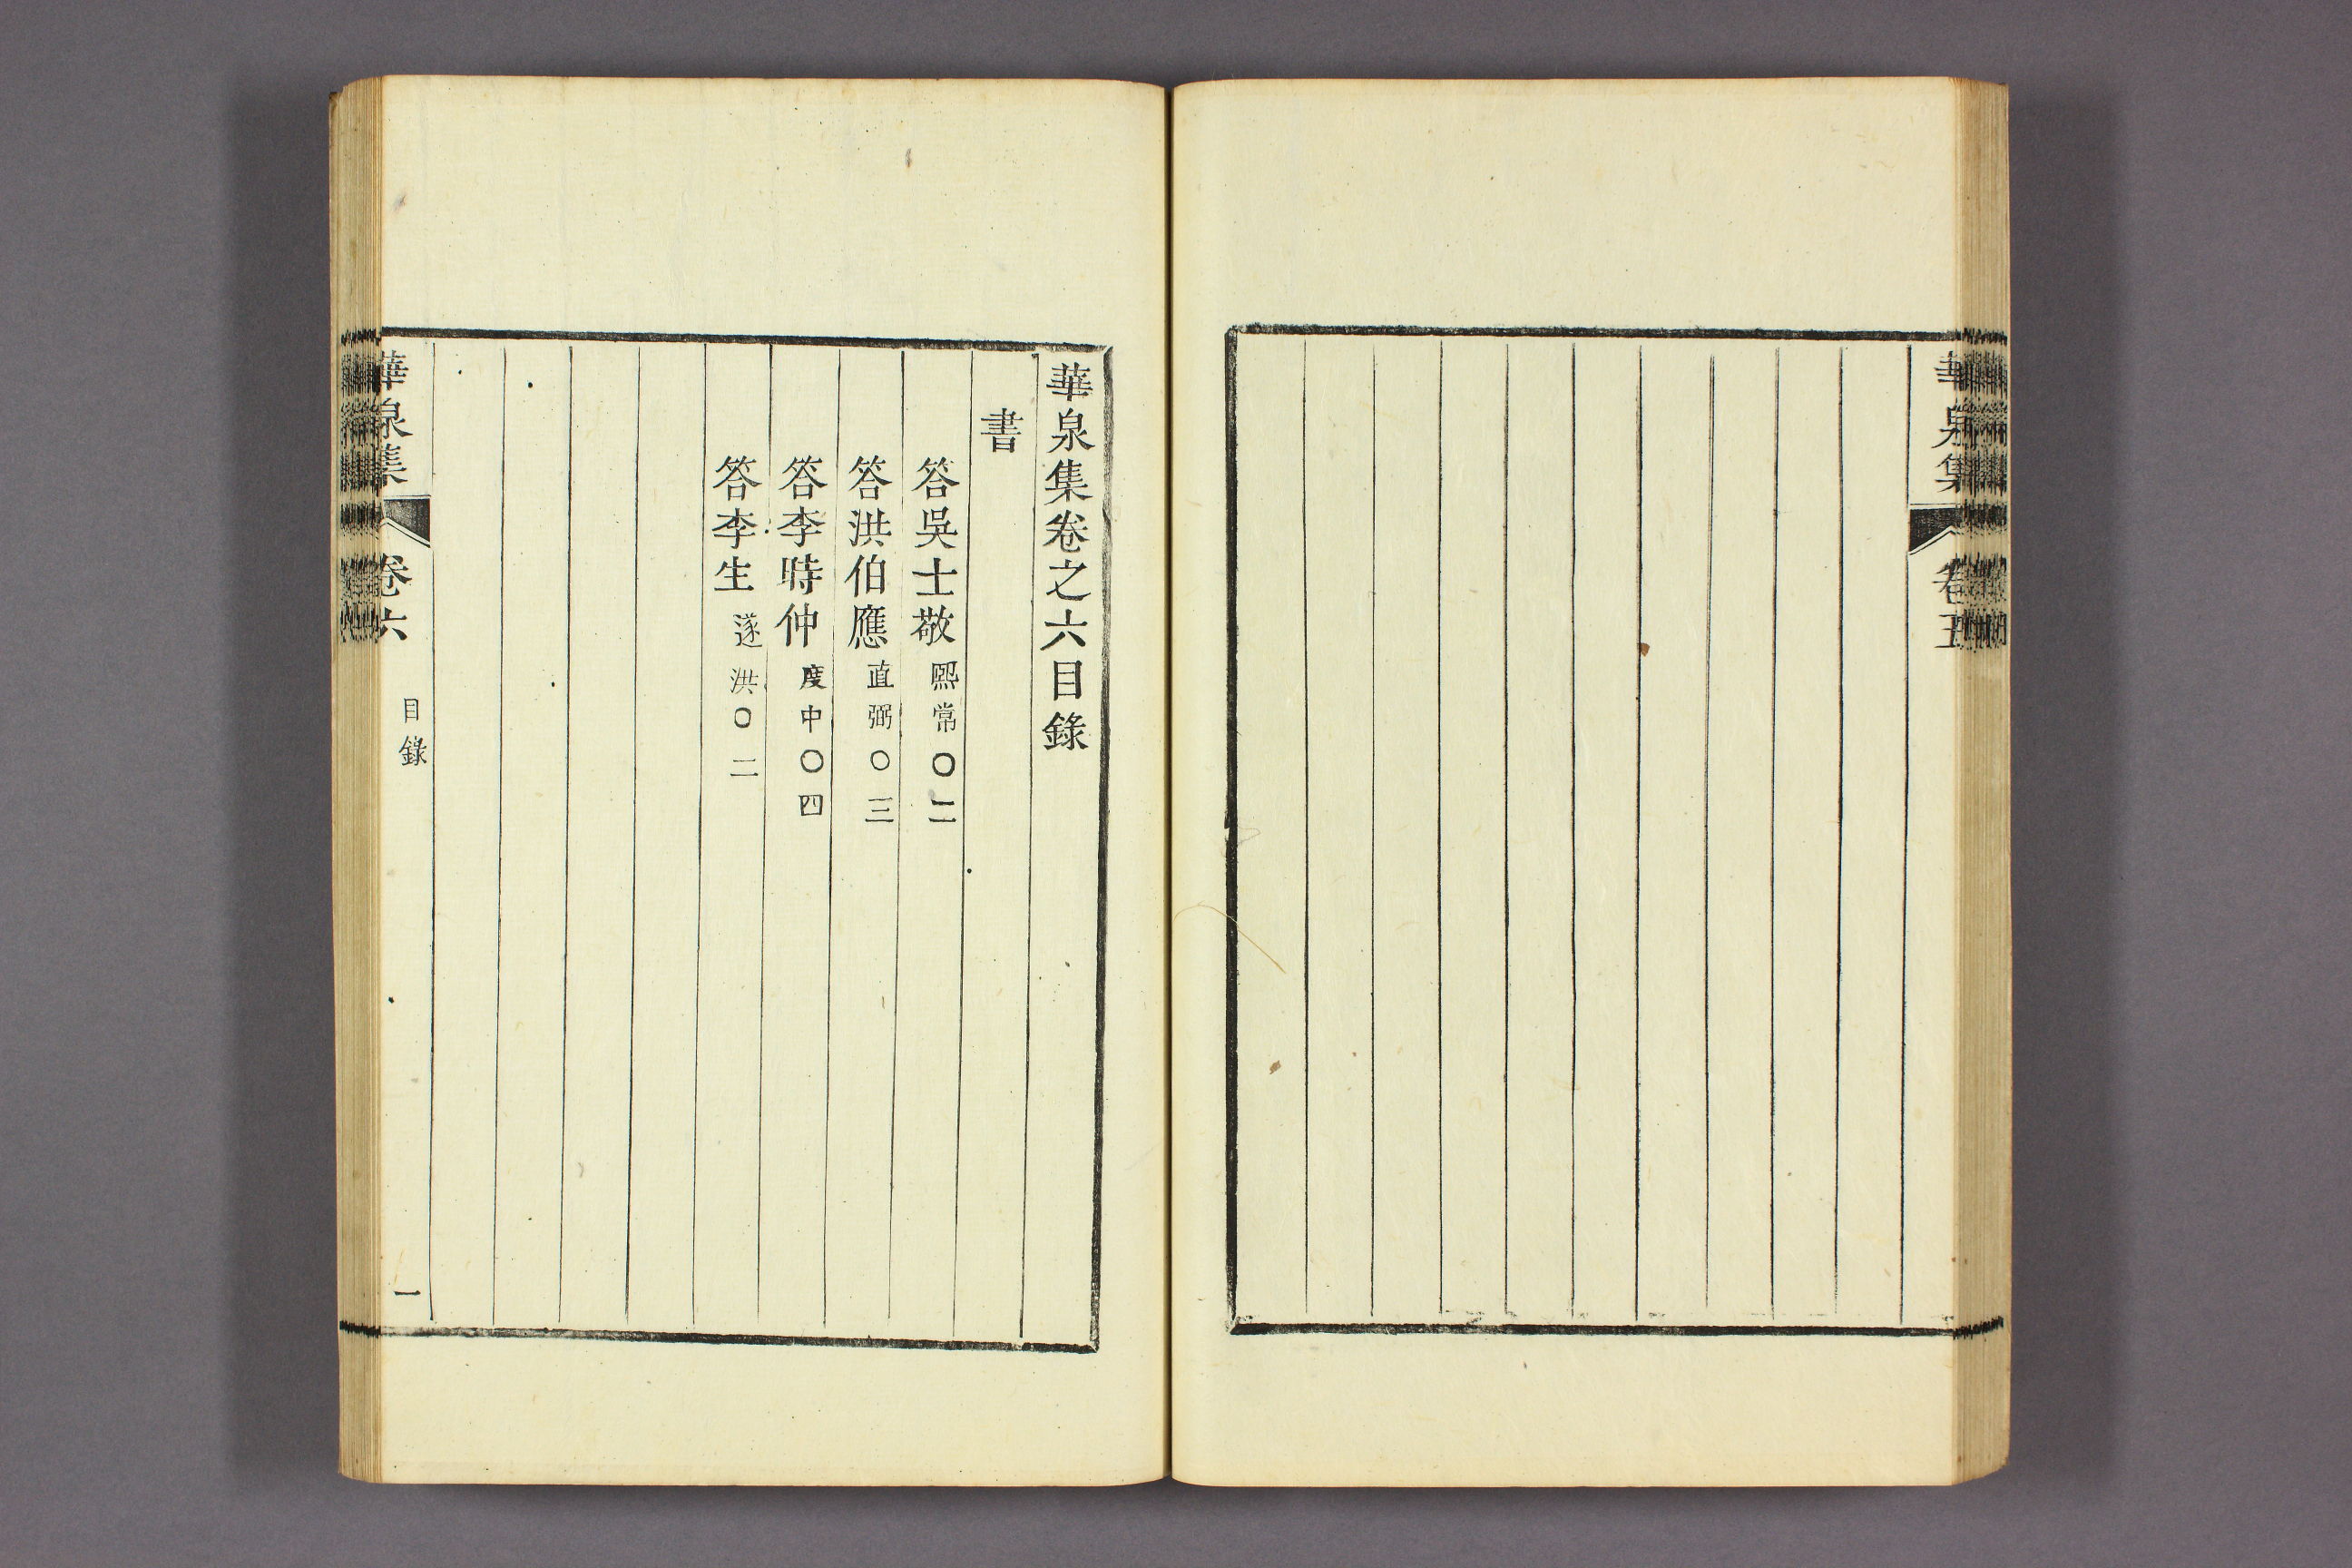 華泉集 卷五
華泉集卷之六目錄
書
答吳士敬熙常〇二
答洪伯應直弼〇三
答李時仲度中〇四
答李生遂洪〇二
華泉集 卷六 目錄 一